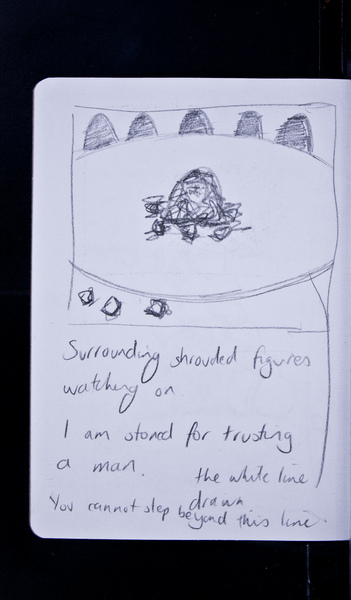 Surrounding shrouded figures
watching on.
I am stoned for trusting
a man.
the white line
drawn
You cannot step beyond this line.